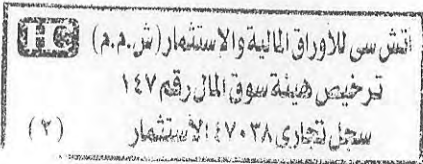 اتش سى للأوراق المالية والاستثمار (ش.م.م) HC
ترخيص هيئة سوق المال رقم ١٤٧
سجل تجارى ٤٧٠٣٨ الأستثمار (٣)